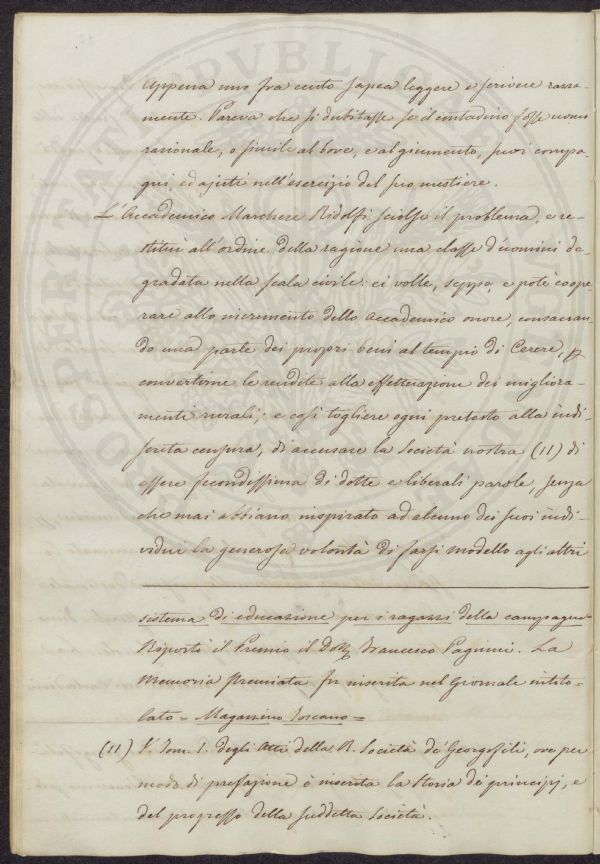 Appena uno fra cento sapea leggere e scrivere rozza-
mente. Pareva che si dubitasse se il contadino fosse uomo
razionale, o simile al bove, e al giumento, suoi compa-
gni, ed ajuti nell'esercizio del suo mestiere.
L'Accademico Marchese Ridolfi sciolse il problema, e re-
stituì all'ordine della ragione una classe d'uomini de-
gradata nella scala civile: ei volle, seppe, e potè coope-
rare allo incremento dello Accademico onore, consacran-
do una parte dei propri beni al tempio di Cerere, p
convertirne le rendite alla effettuazione dei migliora-
menti rurali; e così togliere ogni pretesto alla indi-
screta censura, di accusare la Società nostra (11) di
essere fecondissima di dotte e liberali parole, senza
che mai abbiano inspirato ad alcuno dei suoi indi-
vidui la generosa volontà di farsi modello agli altri
sistema di educazione per i ragazzi della campagna
Riportò il Premio il Dott. Francesco Pagnini. La
Memoria premiata fu inserita nel Giornale intito-
lato = Magazzino Toscano =
(11) V. Tom. I. degli Atti della R. Società de' Georgofili, ove per
modo di prefazione è inserita la Storia de' principj, e
del progresso della suddetta Società.
PUBLICAE
PROSPERITATI